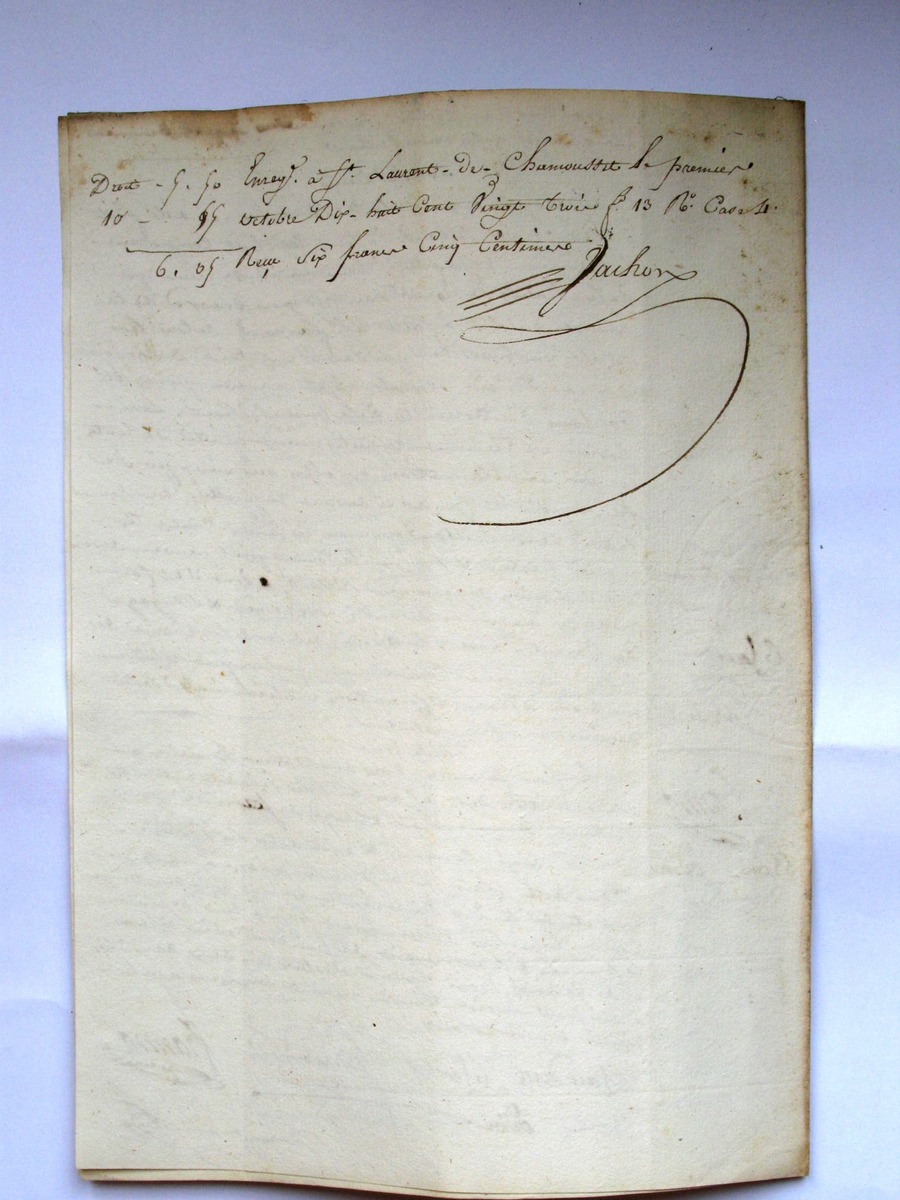 Droit - 5. 50 Enreg. à St. Laurent-de-Chamousset le premier
10 - 55 octobre Dix-huit Cent Vingt trois f. 13 Ro. Case 4.
6. 05 Reçu Six francs Cinq Centimes